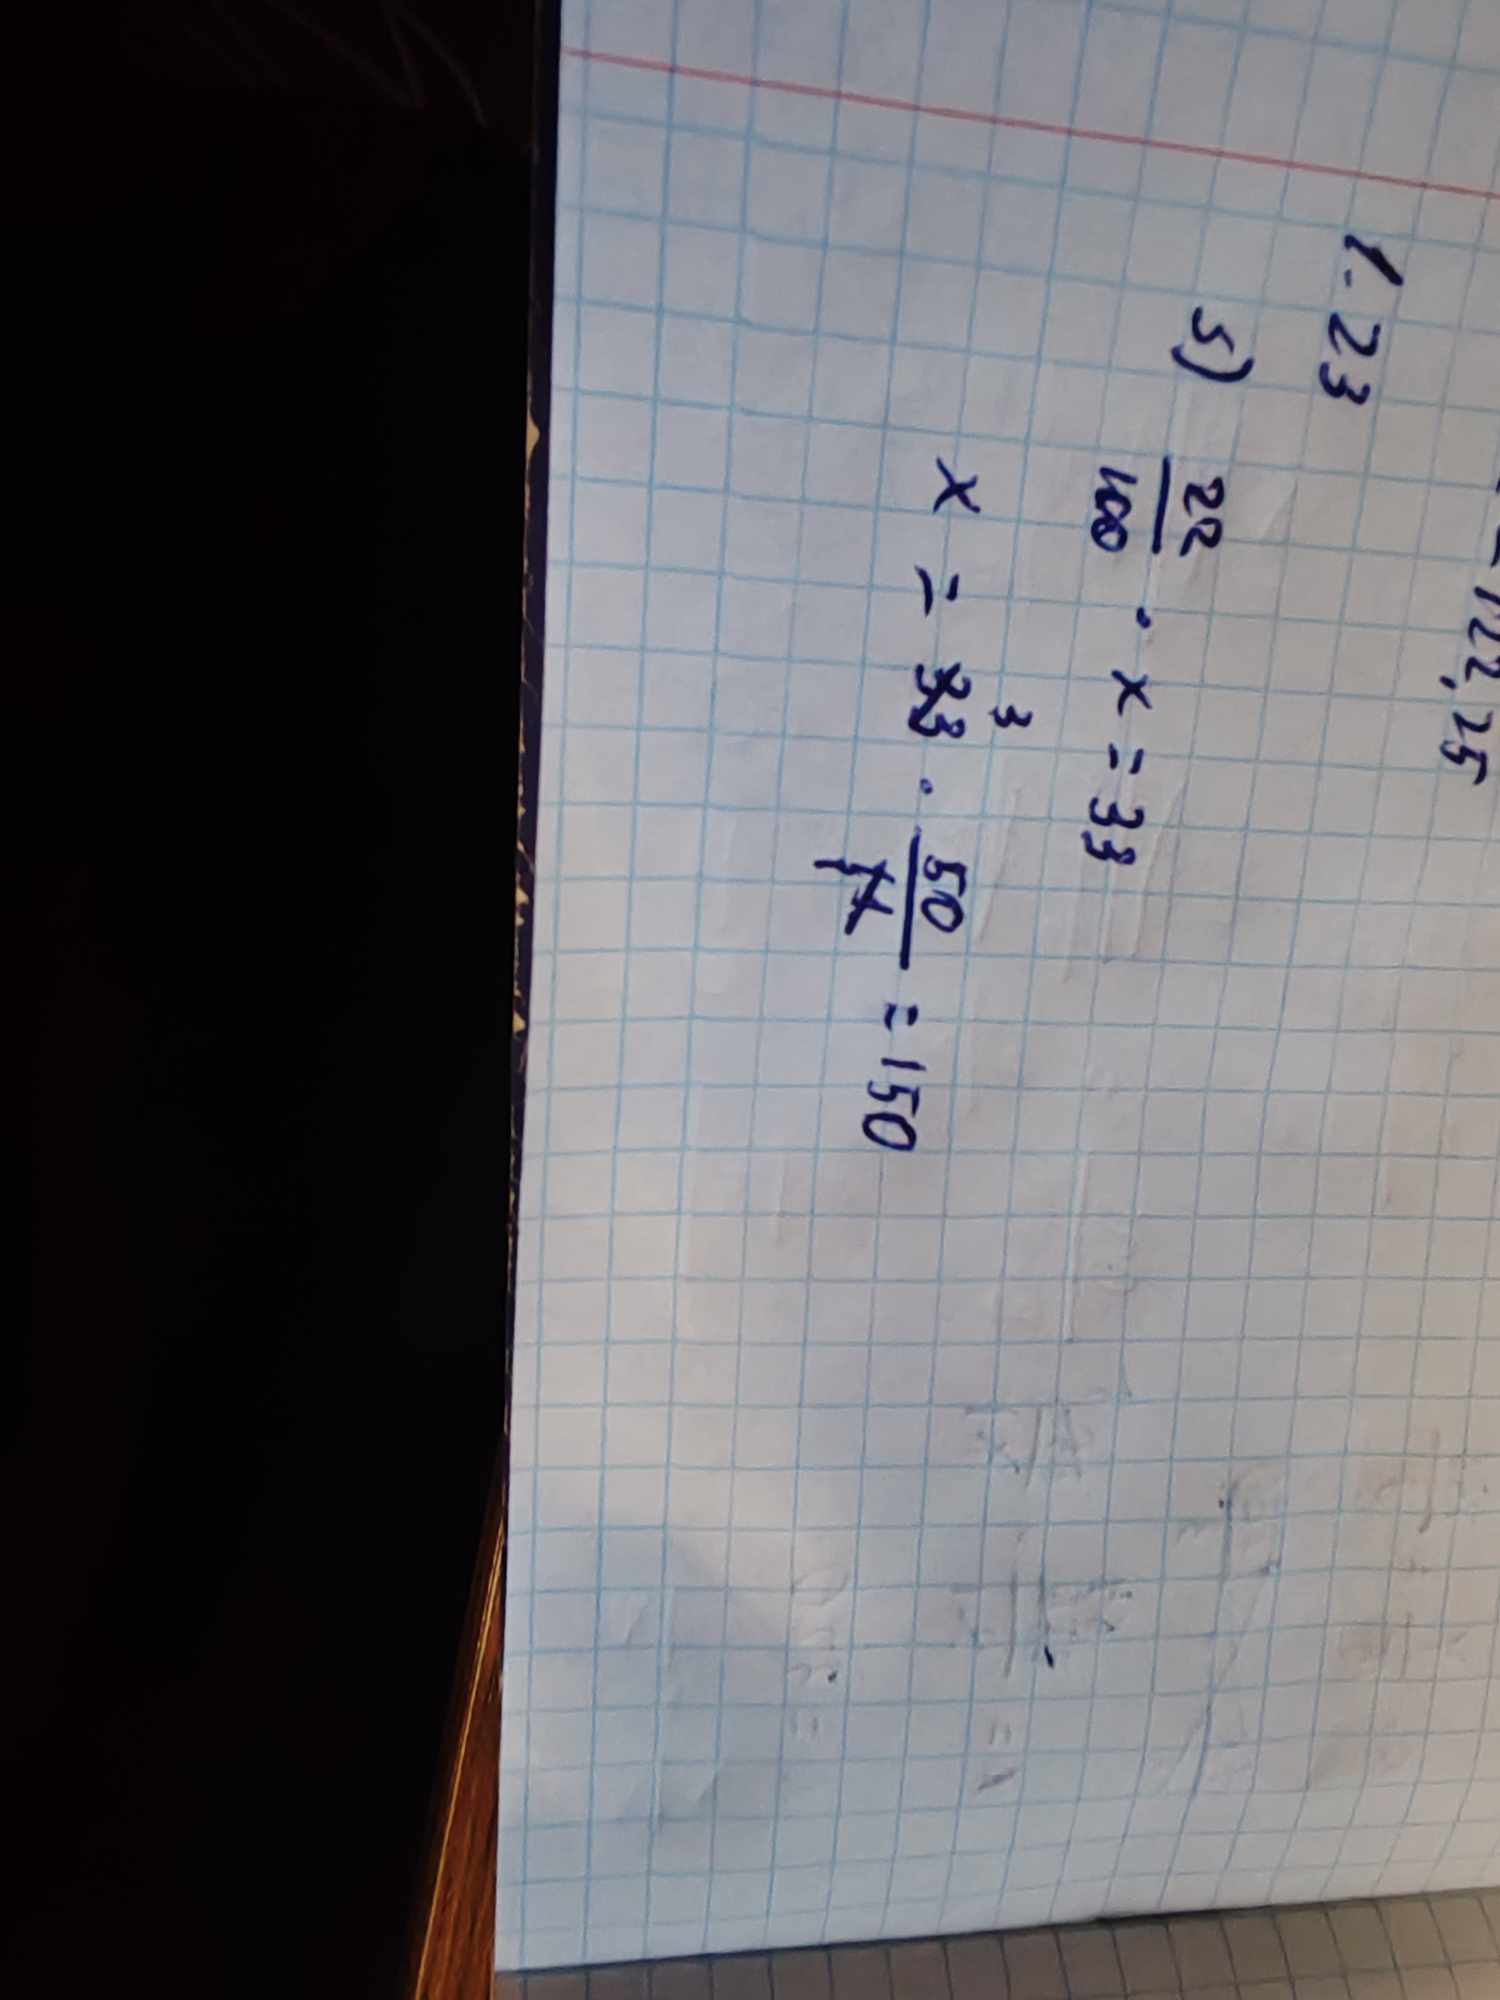 = 122,25
1.23
5) 22/100 · x = 33
x = 33 3 · 50/11 1 = 150